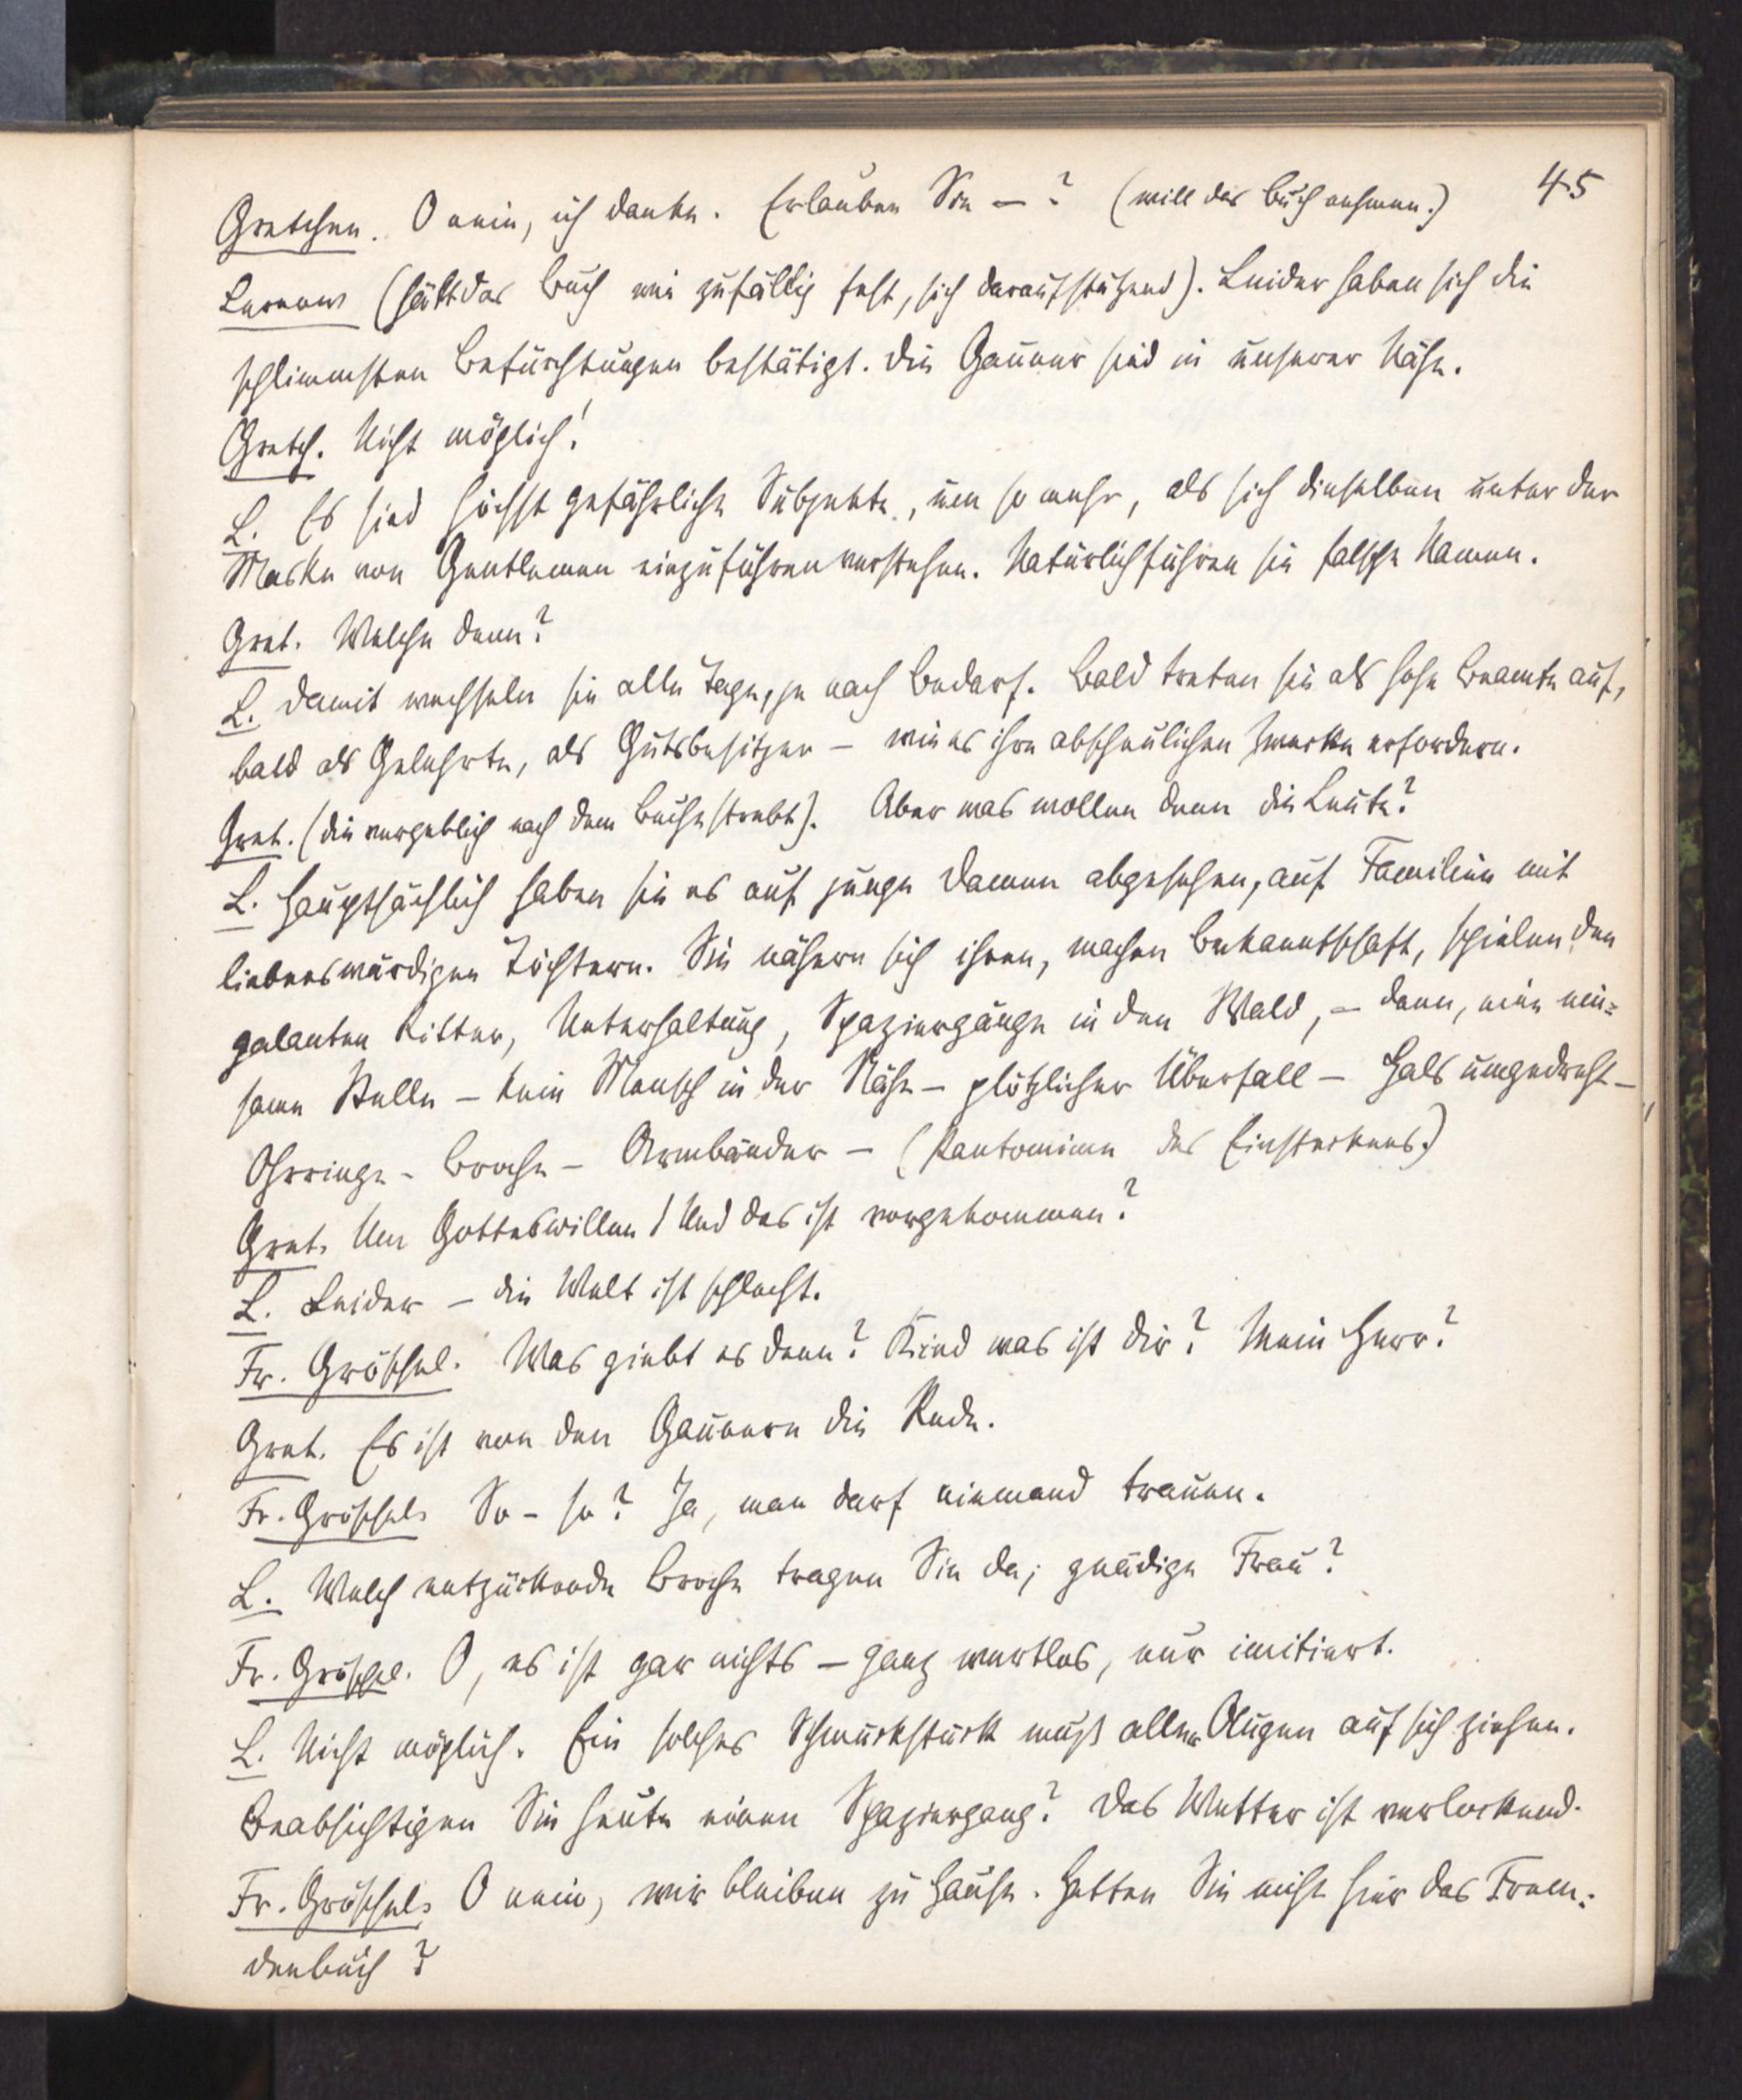 45
Gretchen. O nein, ich danke. Erlauben Sie – ? (will das Buch nehmen.)
(hält das Buch wie zufällig fest, sich darauf stützend). Leider haben sich die
schlimmsten Befürchtungen bestätigt. Die Gauner sind in unserer Nähe.
Gretch. Nicht möglich!
L. Es sind höchst gefährliche Subjekte, um so mehr, als sich dieselben unter der
Maske von Gentlemen einzuführen verstehen. Natürlich führen sie falsche Namen.
Gret. Welche denn?
L. Damit wechseln sie alle Tage, je nach Bedarf. Bald treten sie als hohe Beamte auf,
bald als Gelehrte, als Gutsbesitzer – wie es ihre abscheulichen Zwecke erfordern.
Gret. (die vergeblich nach dem Buche strebt). Aber was wollen denn die Leute?
L. Hauptsächlich haben sie es auf junge Damen abgesehen, auf Familien mit
liebenswürdigen Töchtern. Sie nähern sich ihnen, machen Bekanntschaft, spielen den
galanten Ritter, Unterhaltung, Spaziergänge in den Wald, – dann, eine ein=
same Stelle – kein Mensch in der Nähe – plötzlicher Überfall – Hals umgedreht –
Ohrringe – Broche – Armbänder – (Pantomime des Einsteckens.)
Gret. Um Gotteswillen! Und das ist vorgekommen?
L. Leider – die Welt ist schlecht.
Fr. Gröschel. Was giebt es denn? Kind was ist dir? Mein Herr?
Gret. Es ist von den Gaunern die Rede.
Fr. Gröschel. So – so? Ja, man darf niemand trauen.
L. Welch entzückende Broche tragen Sie da, gnädige Frau?
Fr. Gröschel. O, es ist gar nichts – ganz wertlos, nur imitiert.
L. Nicht möglich. Ein solches Schmuckstück muß aller Augen auf sich ziehen.
Beabsichtigen Sie heute einen Spaziergang? Das Wetter ist verlockend.
Fr. Gröschel. O nein, wir bleiben zu Hause. Hatten Sie nicht hier das Frem=
denbuch?